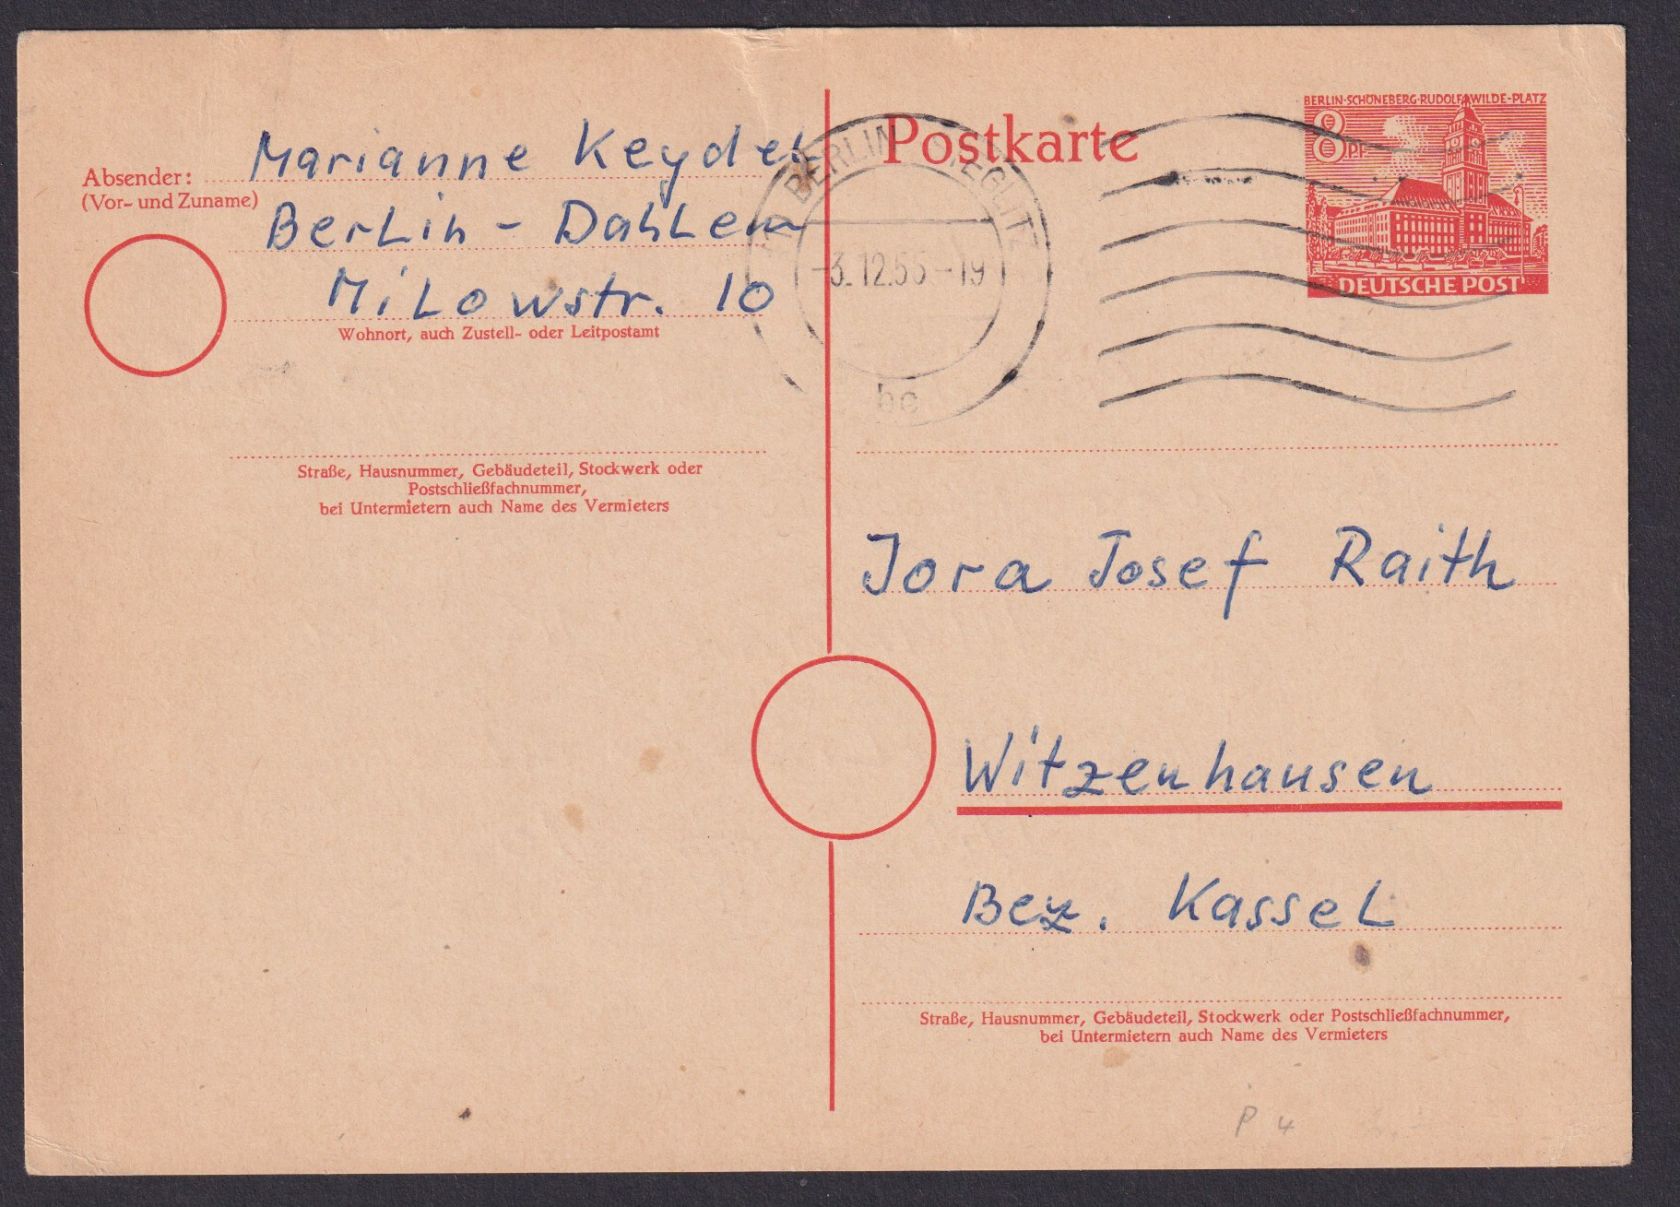 Absender:
(Vor- und Zuname)
Marianne Keydel
Berlin - Dahlem
Milowstr. 10
Wohnort, auch Zustell- oder Leitpostamt
Straße, Hausnummer, Gebäudeteil, Stockwerk oder
Postschließfachnummer,
bei Untermietern auch Name des Vermieters
Postkarte
BERLIN
-3.12.55-19
bc
BERLIN-SCHÖNEBERG·RUDOLF WILDE-PLATZ
8 PF
DEUTSCHE POST
Jora Josef Raith
Witzenhausen
Bez. Kassel
Straße, Hausnummer, Gebäudeteil, Stockwerk oder Postschließfachnummer,
bei Untermietern auch Name des Vermieters
P 4